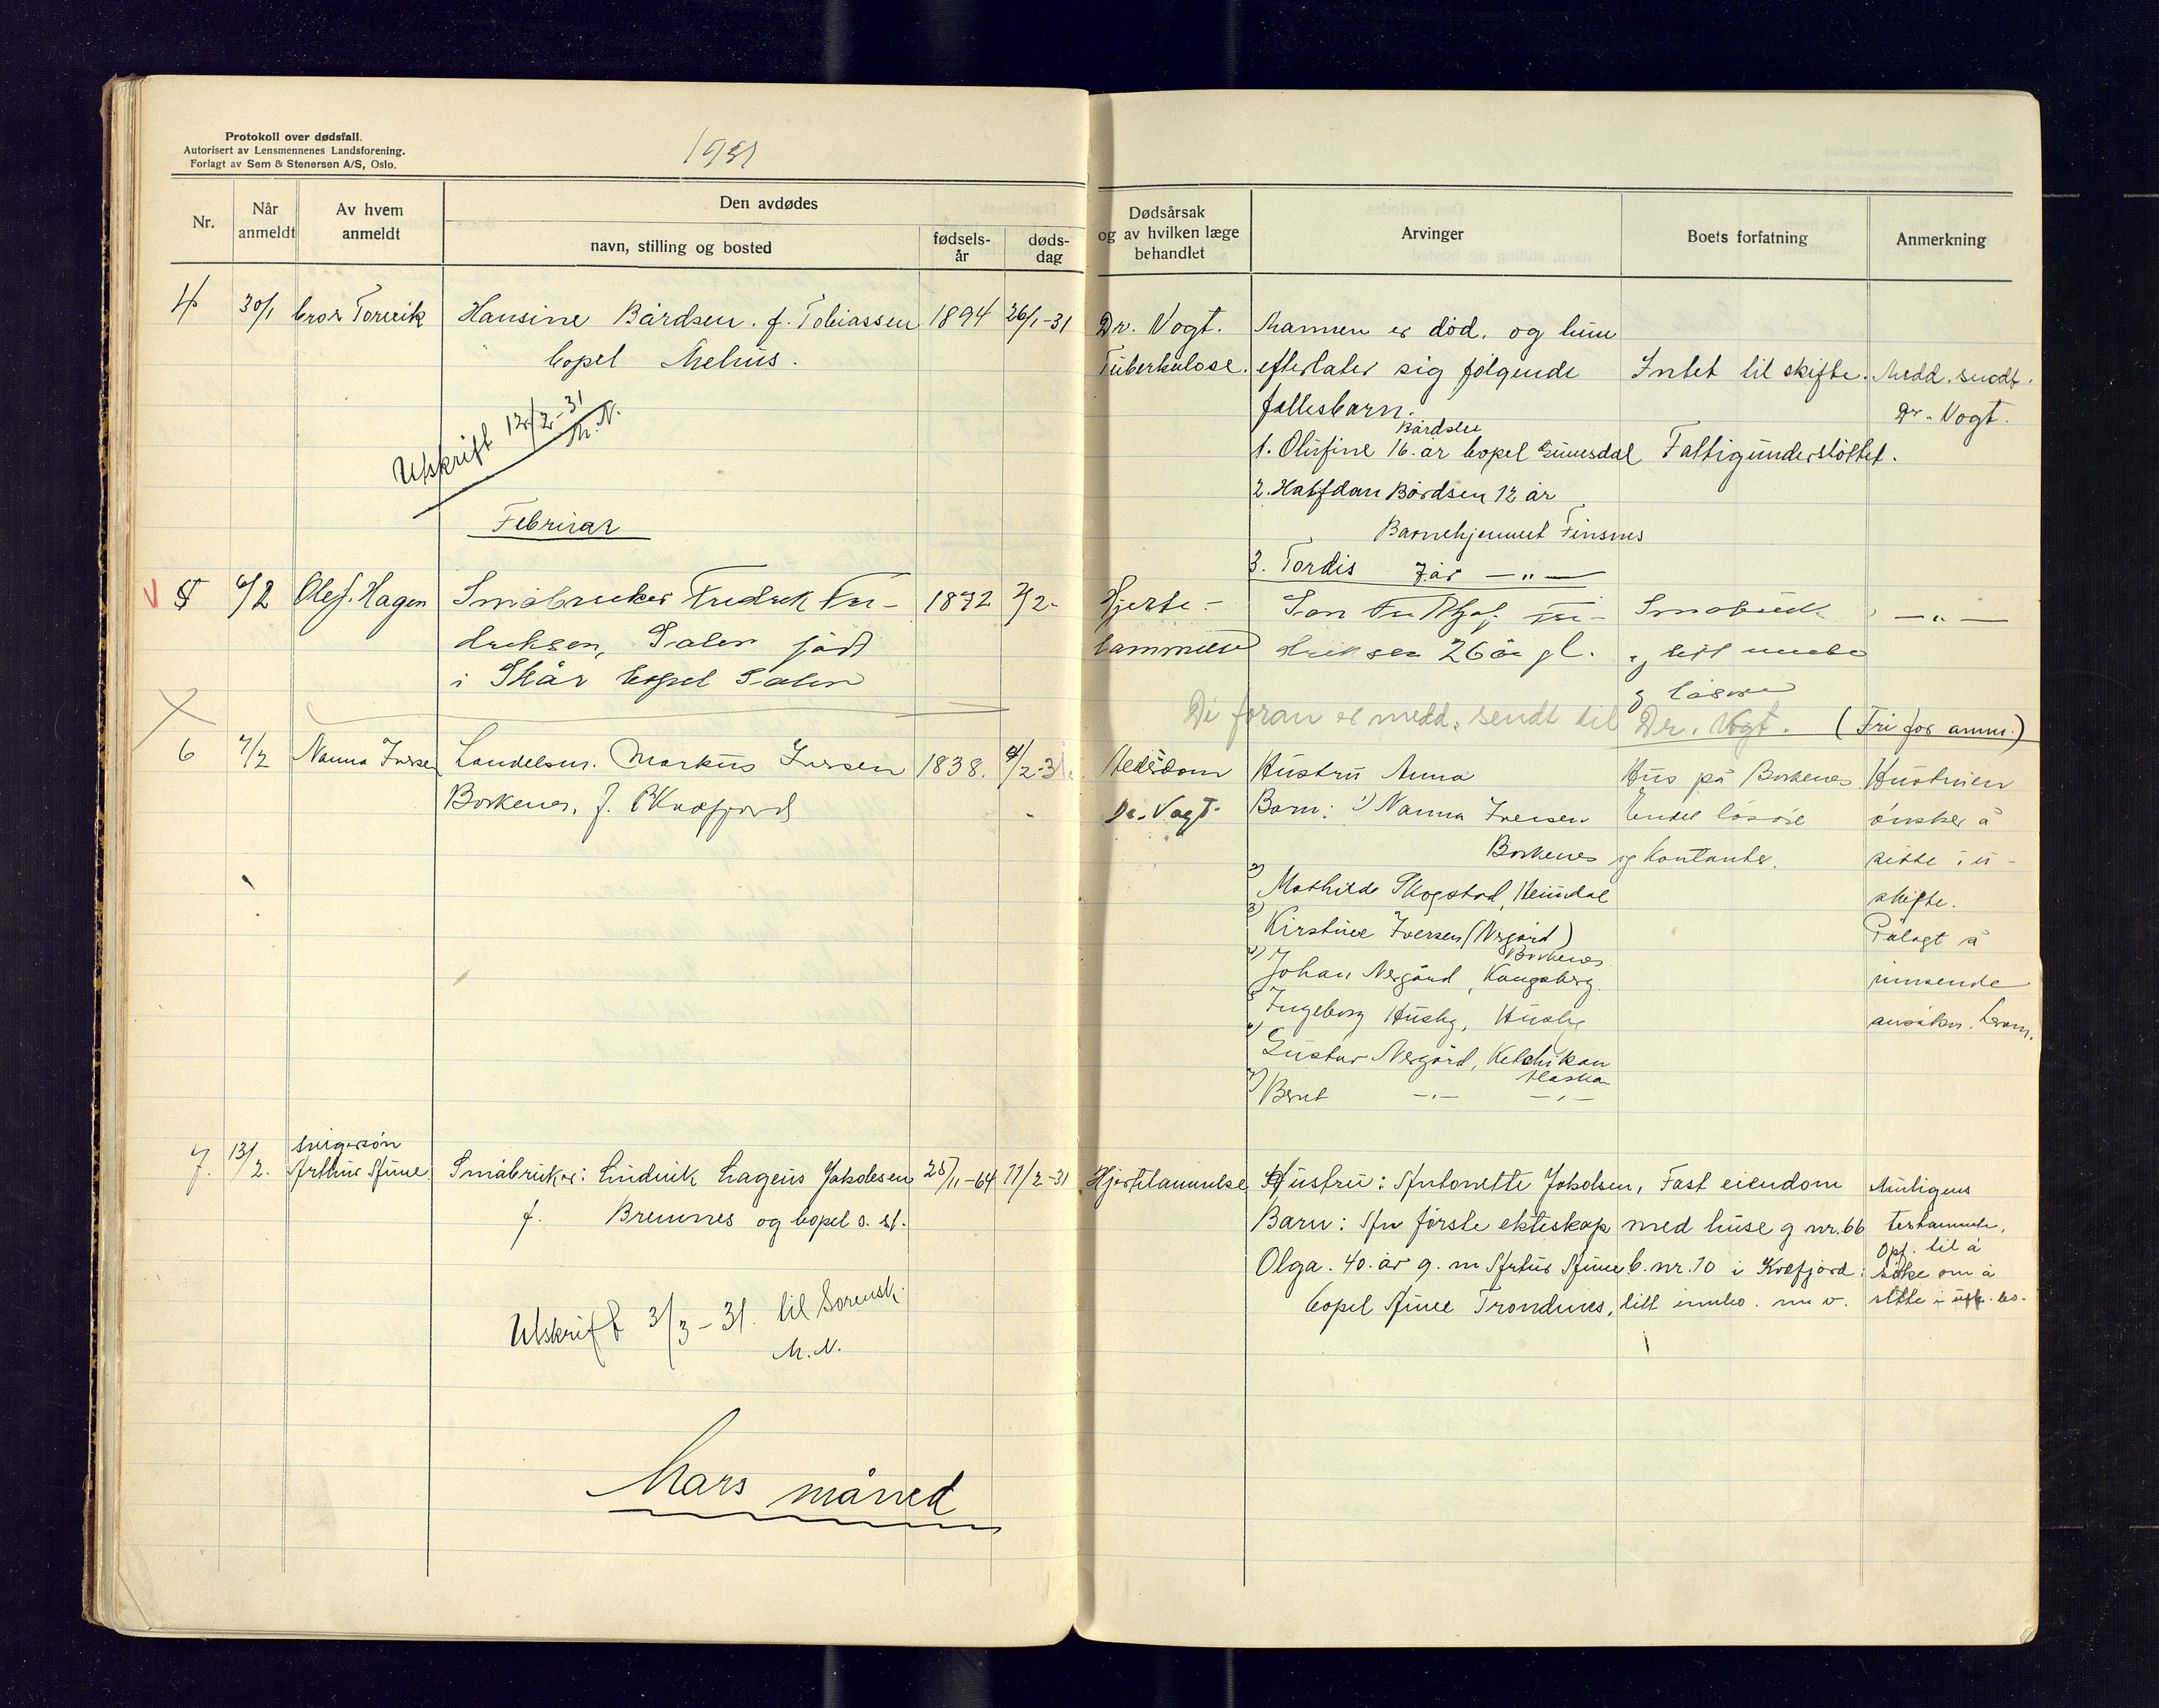 Protokoll over dødsfall.
Autorisert av Lensmennenes Landsforening.
Forlagt av Sem & Stenersen A/S, Oslo.
1931
Nr.
Når anmeldt
Av hvem anmeldt
Den avdødes
navn, stilling og bosted
fødsels-år
døds-dag
Dødsårsak og av hvilken læge behandlet
Arvinger
Boets forfatning
Anmerkning
4 30/1 Hansine Bårdsen. f. Tobiassen 1894 26/1-31
bopel Melhus.
Utskrift 12/2-31
M.N.
Dr. Vogt.
Tuberkulose.
Mannen er död. og hun
efterlater sig fölgende
fellesbarn.
1. Olufine Bårdsen 16. år bopel
2. Halfdan Bårdsen 12 år
Barnehjemmet Finsnes
3. Tordis 7 år —"—
Intet til skifte.
Fattigunderstöttet.
Medd. sendt.
Dr. Vogt.
Februar
V 5 6/2 Ole J. Hagen Småbruker Fredrik Fre-
driksen, Salen född
i bopel Salen
1892 2/2-
Hjerte-
lammelse
26 år gl.
Småbruk
og litt
og lösöre
—"—
De foran er medd. sendt til Dr. Vogt. (Fri for anm.)
6 7/2 Nanna Iversen Markus Iversen 1838. 4/2-31.
Borkenes, f. Kvæfjord
Alderdom
Dr. Vogt.
Hustru Anna
Barn: 1) Nanna Iversen
Borkenes
2) Mathilde Skogstad, Heimdal
3) Kirstine Iversen (Nergård)
Borkenes
4) Johan Nergård, Kongsberg.
5) Ingeborg Husby, Husby
6) Gustav Nergård, Ketchikan
Alaska
7) Bernt —"— —"—
Hus på Borkenes
Endel lösöre
og kontanter.
Hustruen
önsker å
sitte i u-
skifte.
Pålagt å
innsende
7. 13/2. svigersön
Arthur Aune. Småbruker: Ludvik Lageus Jakobsen 25/11-64 11/2-31
f. Bremnes og bopel s. st.
Utskrift 3/3-31. til Sorensk.
M.N.
Hjertelammelse
Hustru: Antonette Jakobsen,
Barn: Av förste ekteskap
Olga. 40. år g. m Artur Aune
bopel Aune Trondenes,
Fast eiendom
med huse g nr. 66
b. nr. 10 i Kvæfjord:
litt innbo. m. v.
Muligens
testamente.
Opf. til å
söke om å
sitte i usk. bo.
Mars måned